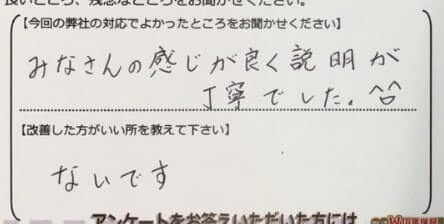 良いところ、残念なところをお聞かせください。
【今回の弊社の対応でよかったところをお聞かせください】
みなさんの感じが良く説明が
丁寧でした。^^
【改善した方がいい所を教えて下さい】
ないです
アンケートをお答えいただいた方には